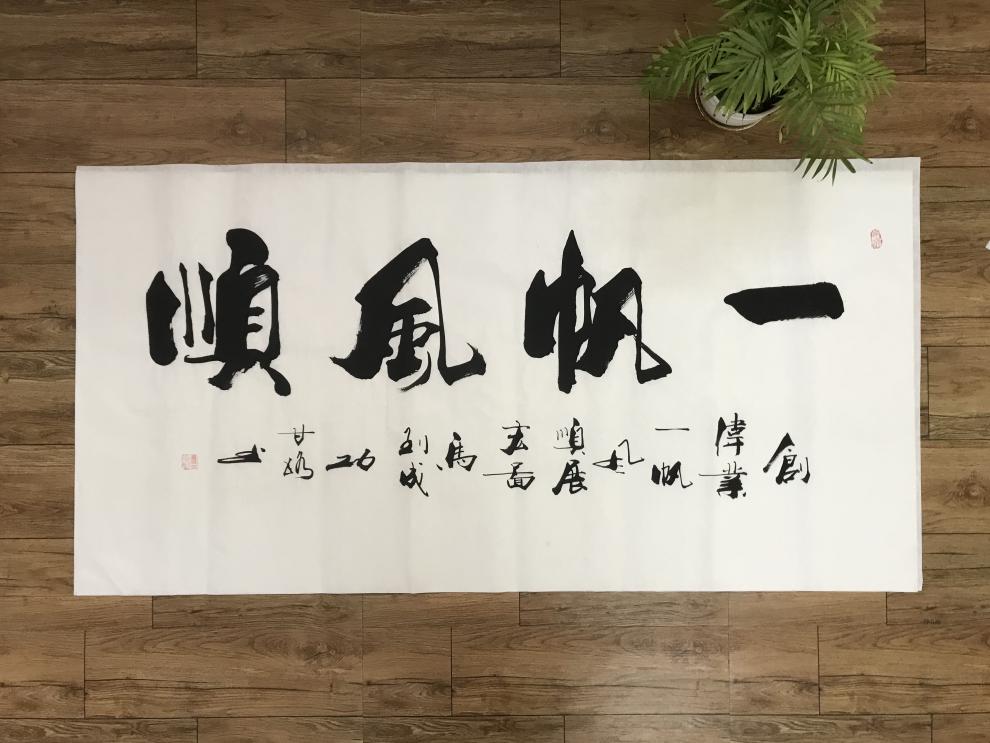 一帆風順
創偉業一帆風順展宏圖馬到成功甘璐书